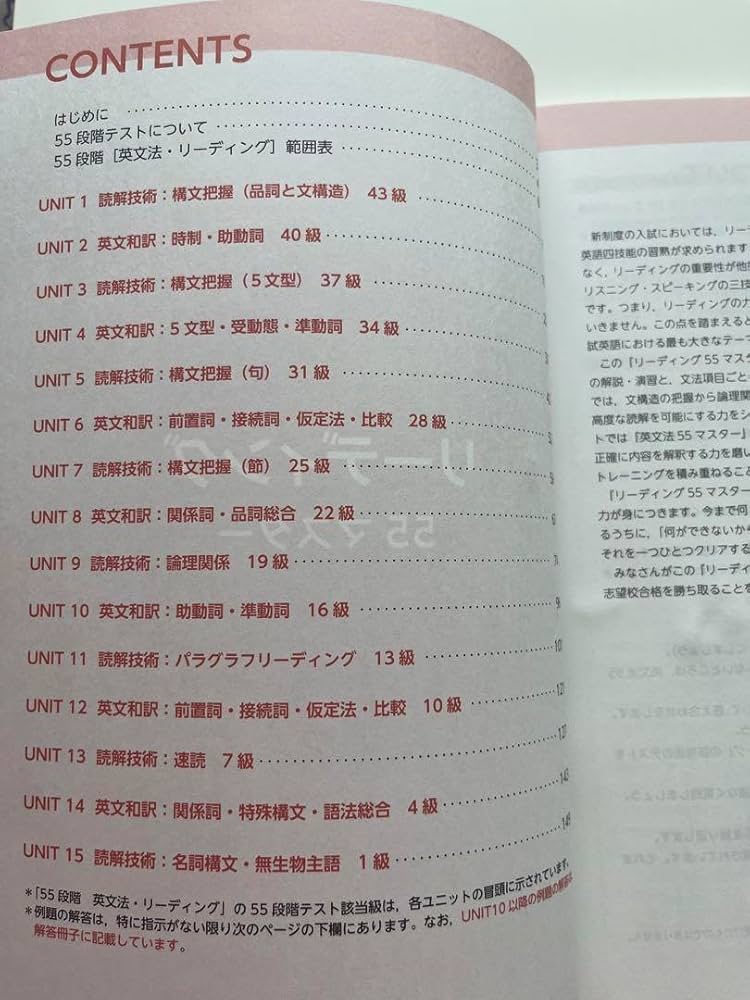 CONTENTS
はじめに
55段階テストについて
55段階［英文法・リーディング］範囲表
UNIT 1 読解技術：構文把握（品詞と文構造） 43級
UNIT 2 英文和訳：時制・助動詞 40級
UNIT 3 読解技術：構文把握（5文型） 37級
UNIT 4 英文和訳：5文型・受動態・準動詞 34級
UNIT 5 読解技術：構文把握（句） 31級
UNIT 6 英文和訳：前置詞・接続詞・仮定法・比較 28級
UNIT 7 読解技術：構文把握（節） 25級
UNIT 8 英文和訳：関係詞・品詞総合 22級
UNIT 9 読解技術：論理関係 19級
UNIT 10 英文和訳：助動詞・準動詞 16級
UNIT 11 読解技術：パラグラフリーディング 13級 101
UNIT 12 英文和訳：前置詞・接続詞・仮定法・比較 10級 121
UNIT 13 読解技術：速読 7級 127
UNIT 14 英文和訳：関係詞・特殊構文・語法総合 4級 143
UNIT 15 読解技術：名詞構文・無生物主語 1級 149
＊「55段階 英文法・リーディング」の55段階テスト該当級は，各ユニットの冒頭に示されています。
＊例題の解答は，特に指示がない限り次のページの下欄にあります。なお，UNIT10以降の例題の解答は
解答冊子に記載しています。
新制度の入試においては，リー
英語四技能の習熟が求められます
なく，リーディングの重要性が他
リスニング・スピーキングの三技
です。つまり，リーディングの力
いきません。この点を踏まえると
試英語における最も大きなテーマ
この『リーディング55マスタ
の解説・演習と，文法項目ごと
では，文構造の把握から論理関
高度な読解を可能にする力をシ
トでは『英文法55マスター』
正確に内容を解釈する力を磨い
トレーニングを積み重ねること
『リーディング55マスター
力が身につきます。今まで何
るうちに，「何ができないから
それを一つひとつクリアする
みなさんがこの『リーディ
志望校合格を勝ち取ることを